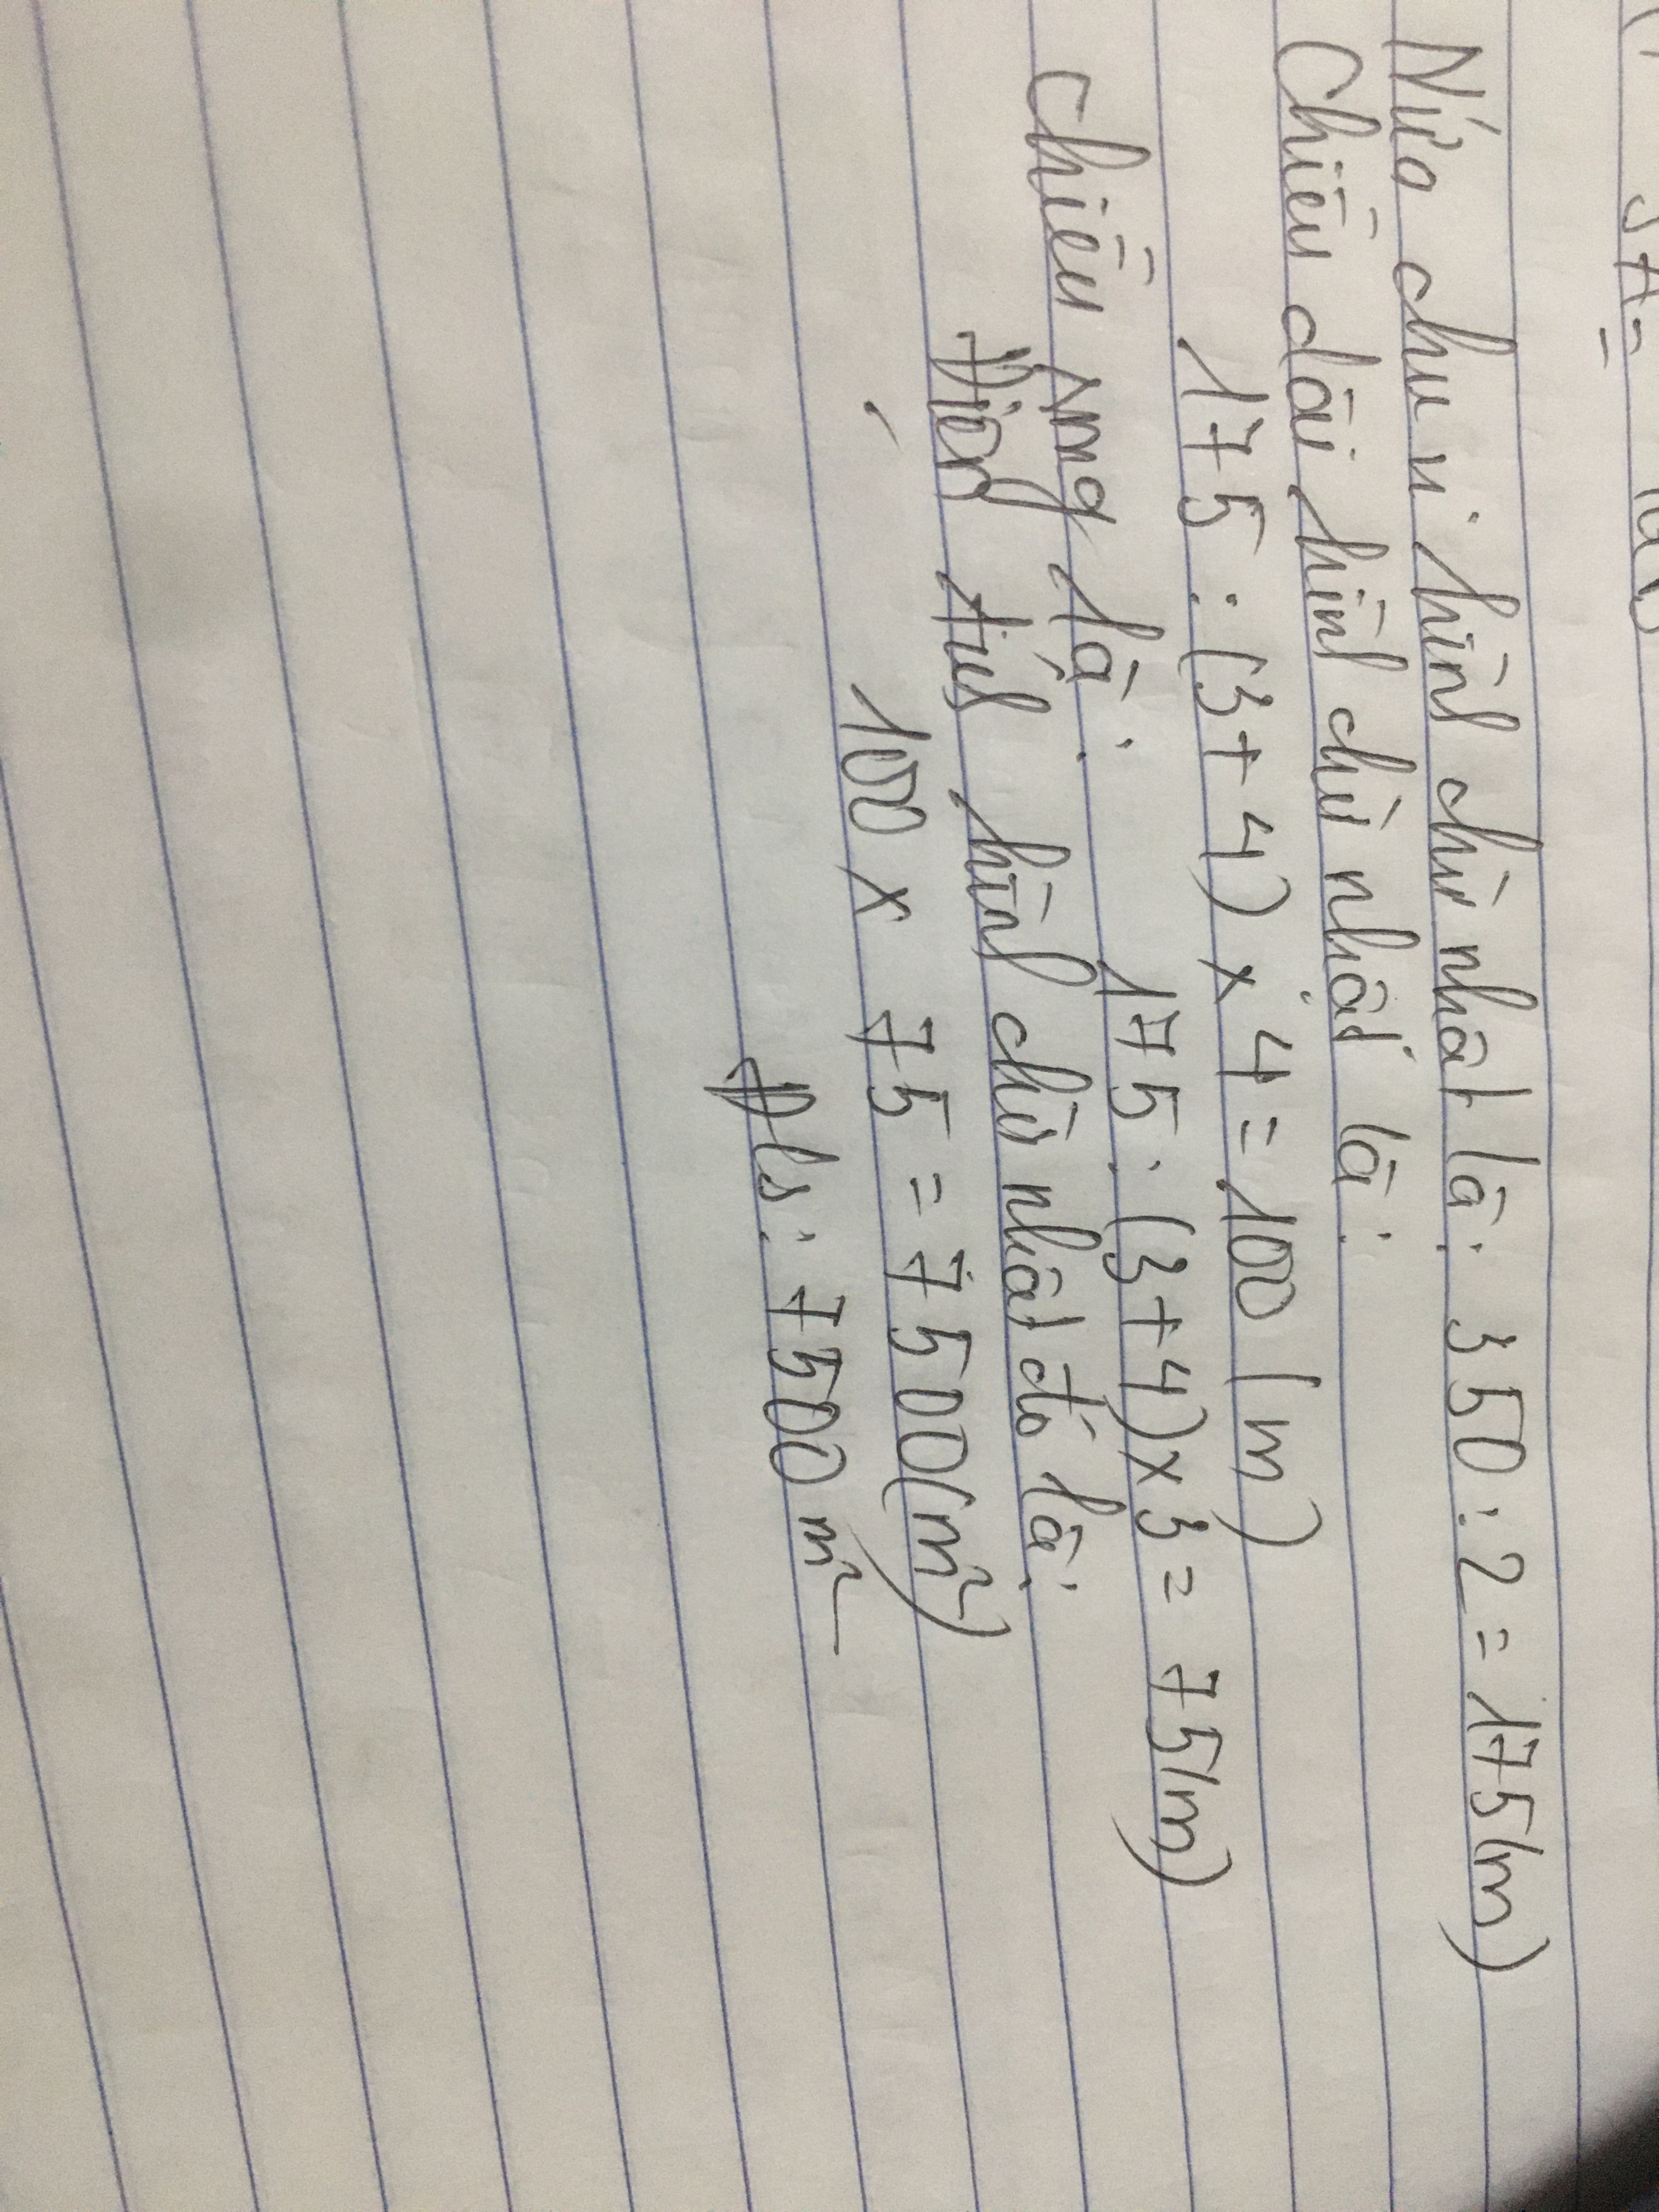 Nửa chu vi hình chữ nhật là: 350 : 2 = 175 (m)
Chiều dài hình chữ nhật là:
175 : (3 + 4) x 4 = 100 (m)
Chiều rộng là: 175 : (3 + 4) x 3 = 75 (m)
Diện tích hình chữ nhật đó là:
100 x 75 = 7500 (m²)
Đ/s: 7500 m²